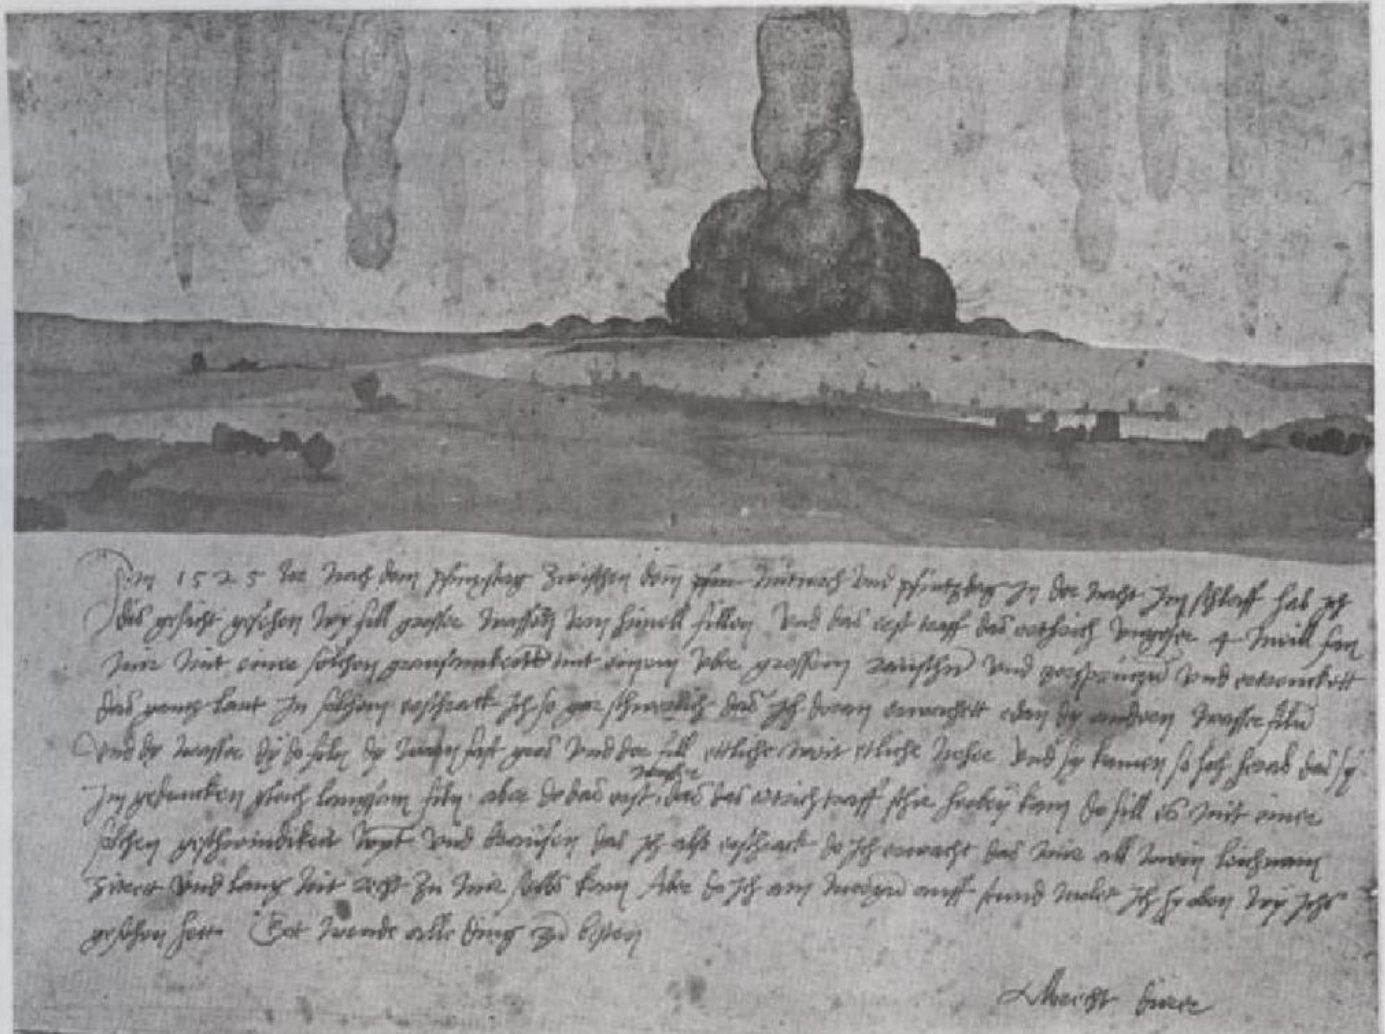 Im 1525 Jor nach dem pfinxstag zwischen dem pfin mitwoch und pfintzdag in der nacht im schlaff hab ich
dis gesicht gesehen wy fill grosser wassern vom himell fillen Und das erst traff das erthrich ungefer 4 meill fan
mir mit einer solchen grausamkeitt mit einem uber grossem raüschn und zersprützn und ertrenckett
das gantz lant In solchem erschrack ich so gar schwerlich das ich doran erwachett edan dy andern wasser filn
Und dy wasser dy do filn dy warn fast gros und der fill ettliche weit etliche neher und sy kamen so hoch herab das sy
im gedancken gleich langsam filn aber do das erst wasser das das ertrich traff schir herbey kam do fill es mit einer
solchen geschwindikeit wynt und braüsen das ich also erschrack do ich erwacht das mir all mein leichnam
zitrett und lang nit recht zu mir selbs kam Aber do ich am morgn auff stund molet ich hy oben wy ichs
gesehen hett Got wende alle ding zu besten
Albrecht dürer